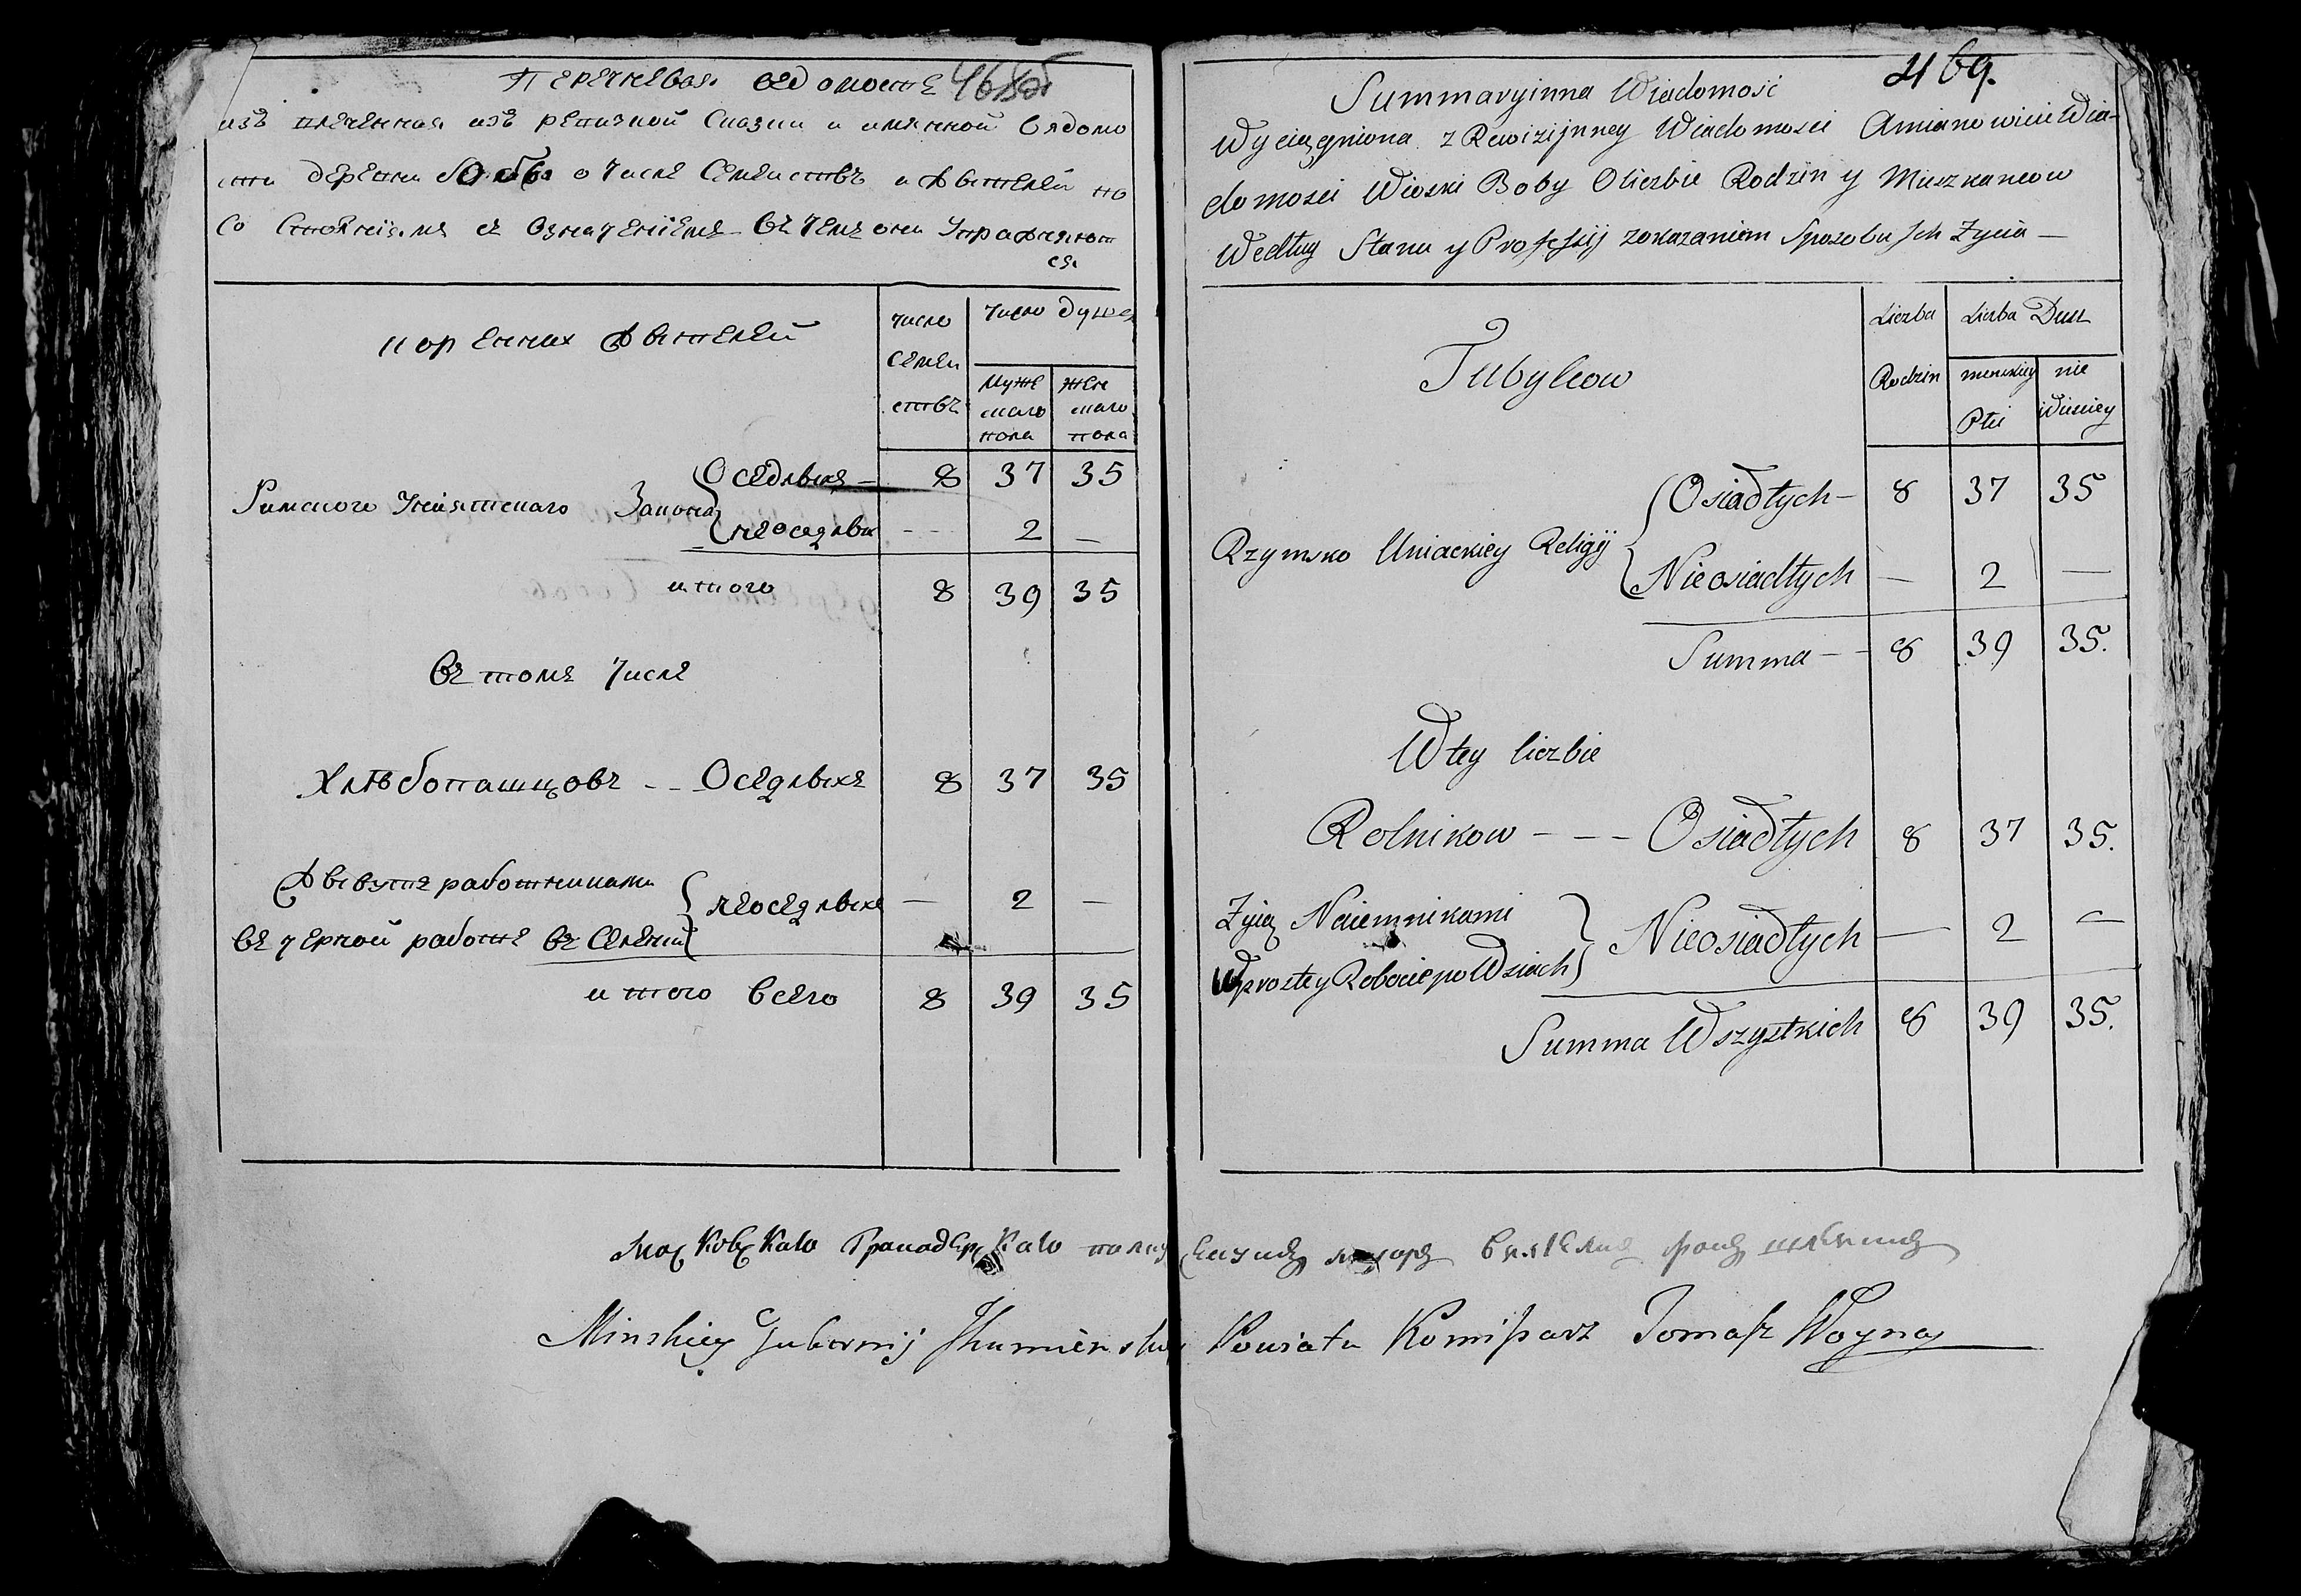 Перечневая ведомость 468об
извлеченная изъ ревизкой сказки и имянной вядомо
сти деревни Бобы о числе семействъ и жителей по
Состояніямъ съ означеніемъ въ чемъ они упражняют
ся
коренныхъ жителей
число семействъ
число душъ
мужескаго пола
женскаго пола
Римского Унiятскаго Закона
Оседлыхъ — 8 37 35
неоседлых — 2 —
итого 8 39 35
въ томъ числе
Хлѣбопашцовъ -- Оседлыхъ 8 37 35
Живутъ работниками
въ черной работе въ селеніи
неоседлыхъ — 2 —
итого всего 8 39 35
469.
Summaryinna Wiadomość
Wyciągniona z Rewizijnney Wiadomosci Amianowicie Wia-
domosci Wioski Boby Oliczbie Rodzin y Mieszkancow
Według Stanu y Professij zokazaniem Sposobu Jch Życia —
Tubylcow
Liczba Rodzin
Liczba Dusz
menskiey Płci
nie Wiesciey
Rzymsko Uniackiey Religij
Osiadłych — 8 37 35
Nieosiadłych — 2 —
Summa — 8 39 35.
Wtey liczbie
Rolnikow --- Osiadłych 8 37 35.
Żyią Naiemnikami
Wprostey Robocie po Wsiach
Nieosiadłych — 2 —
Summa Wszystkich 8 39 35.
Московскаго Гранодерскаго полку
Minskiey Gubernij Jhumenskiego Powiatu Komissarz Tomasz Woyna